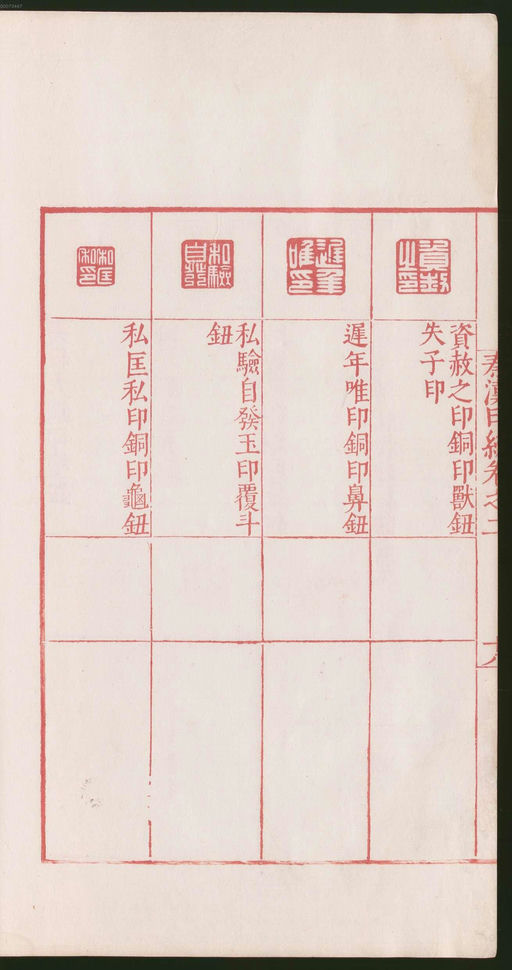 秦漢印統卷之二
資赦之印
資赦之印銅印獸鈕
失子印
遲年唯印
遲年唯印銅印鼻鈕
私驗自發
私驗自發玉印覆斗
鈕
私匡私印
私匡私印銅印龜鈕